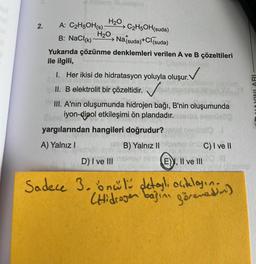 2. A: C₂H₅OH(s) H₂O → C₂H₅OH(suda)
B: NaCl(k) H₂O → Na⁺(suda)+Cl⁻(suda)
Yukarıda çözünme denklemleri verilen A ve B çözeltileri
ile ilgili,
I. Her ikisi de hidratasyon yoluyla oluşur. ✓
II. B elektrolit bir çözeltidir. ✓
III. A'nın oluşumunda hidrojen bağı, B'nin oluşumunda
iyon-dipol etkileşimi ön plandadır.
yargılarından hangileri doğrudur?
A) Yalnız I B) Yalnız II C) I ve II
D) I ve III E) I, II ve III
Sadece 3. öncülü detaylı açıklayın.
(Hidrojen bağını göremedim)